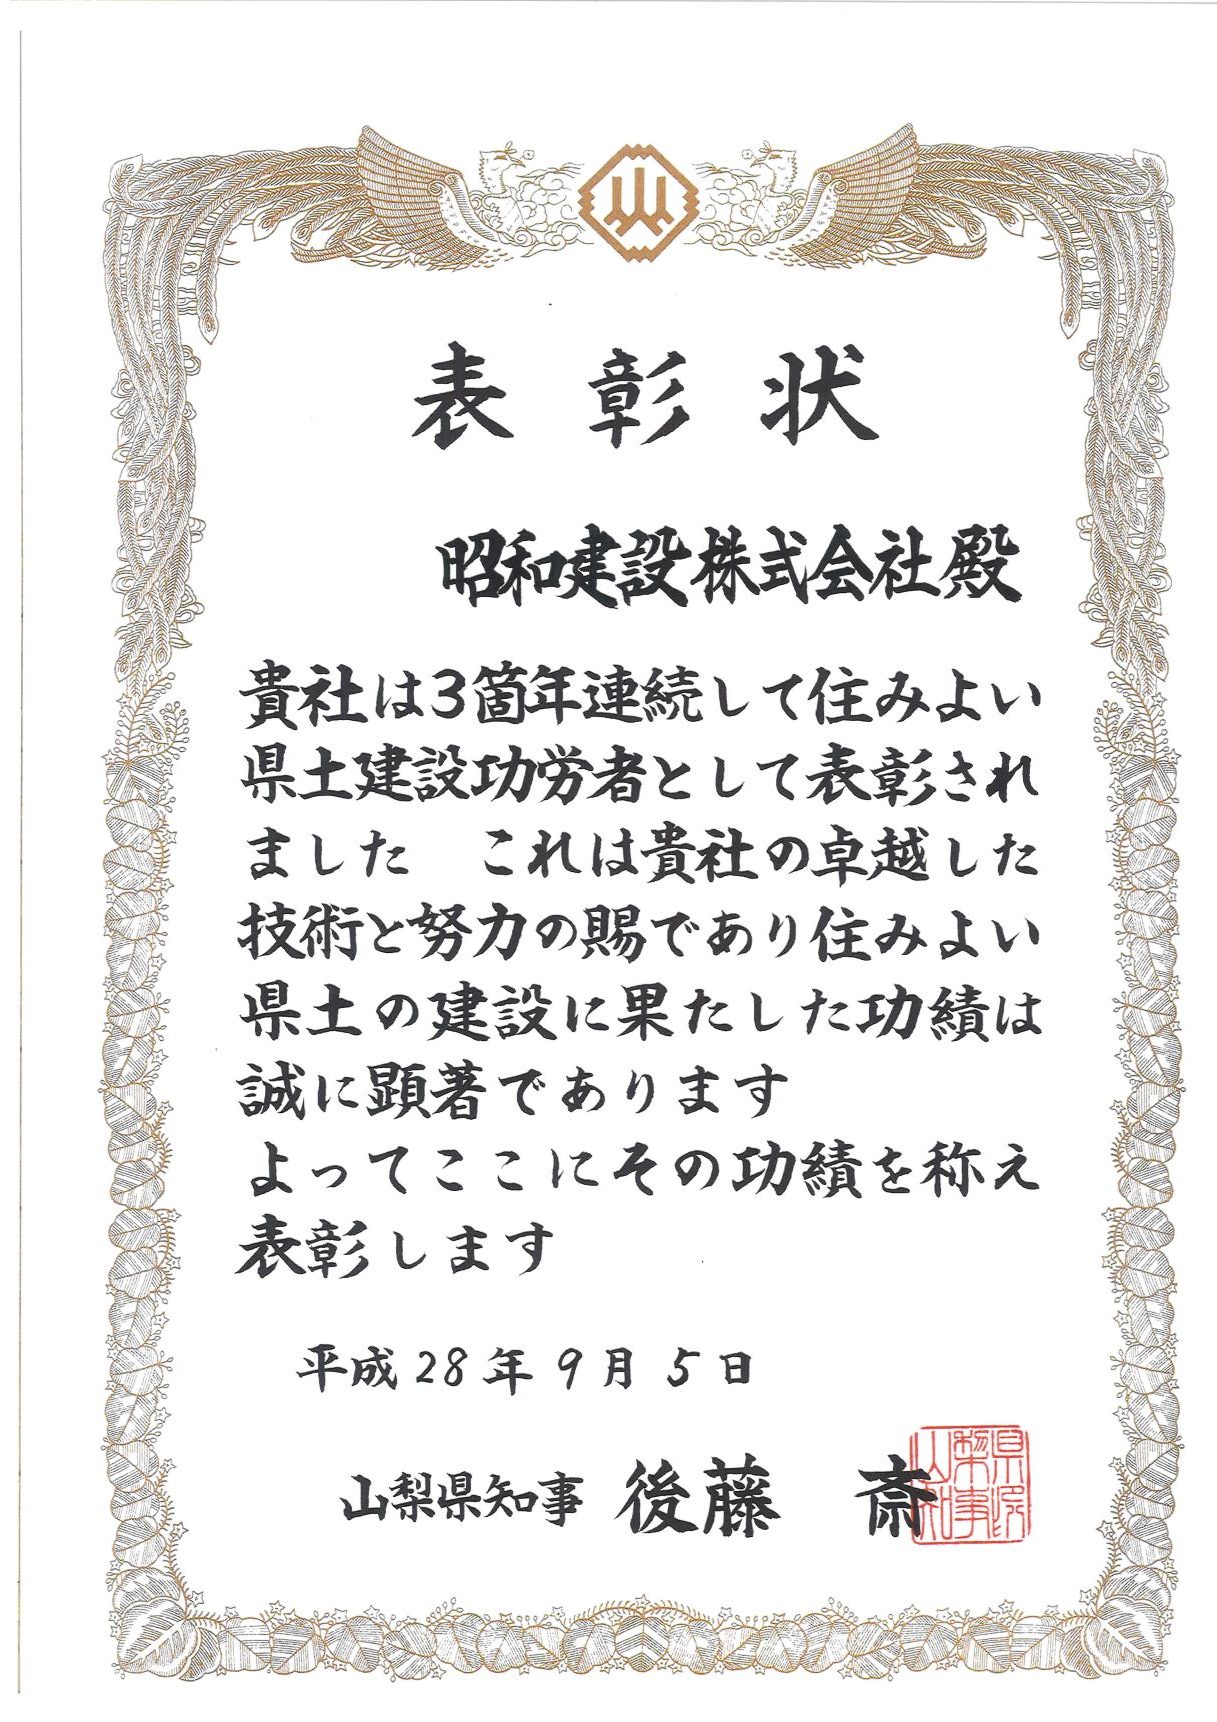 表彰状
昭和建設株式会社殿
貴社は3箇年連続して住みよい
県土建設功労者として表彰され
ました　これは貴社の卓越した
技術と努力の賜であり住みよい
県土の建設に果たした功績は
誠に顕著であります
よってここにその功績を称え
表彰します
平成28年9月5日
山梨県知事 後藤 斎